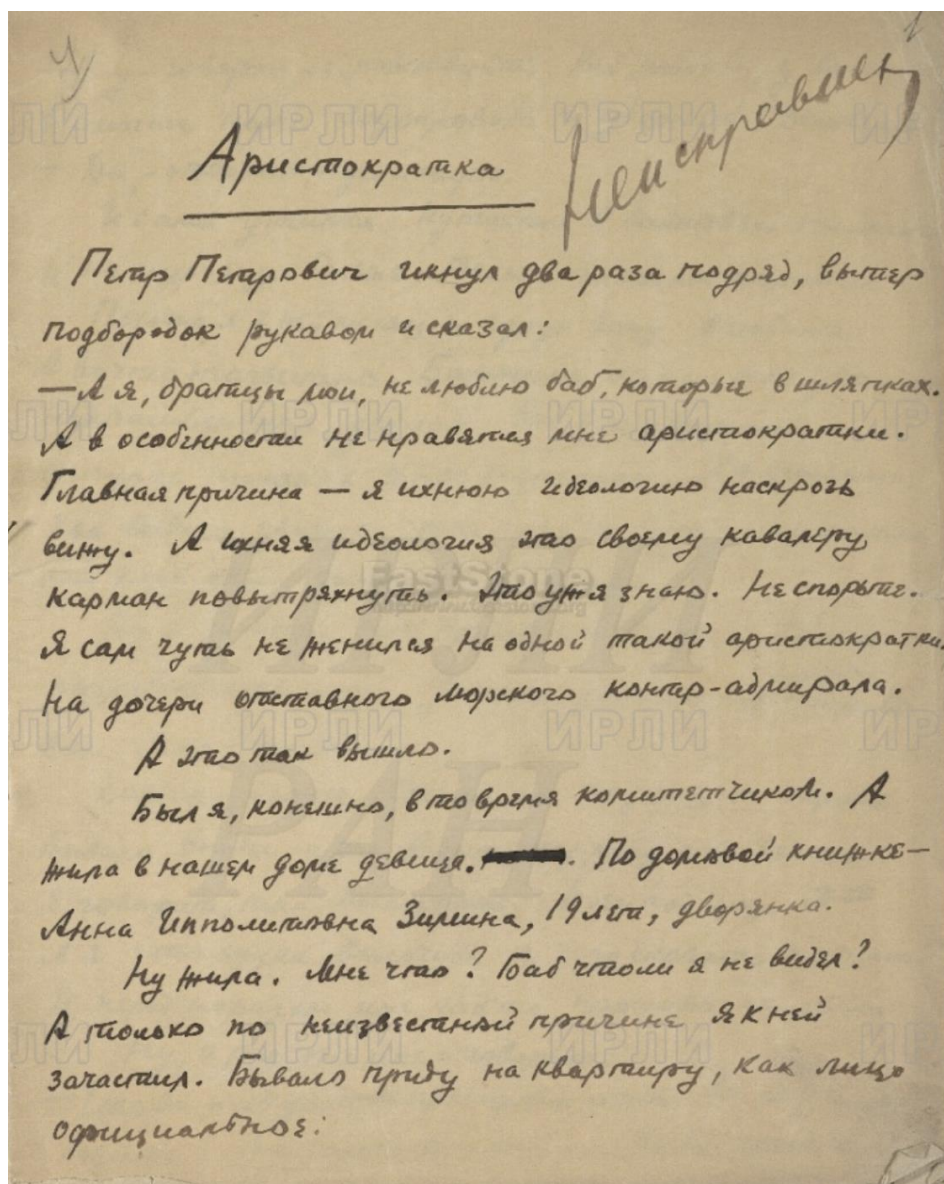 1)
1
Неисправлен
Аристократка
Петр Петрович икнул два раза подряд, вытер
подбородок рукавом и сказал:
— А я, братцы мои, не люблю баб, которые в шляпках.
А в особенности не нравятся мне аристократки.
Главная причина — я ихнюю идеологию наскрозь
вижу. А ихняя идеология это своему кавалеру
карман повытряхнуть. Это уж я знаю. Не спорьте.
Я сам чуть не женился на одной такой аристократки.
На дочери отставного морского контр-адмирала.
А это так вышло.
Был я, конешно, в то время комитетчиком. А
жила в нашем доме девица. . По домовой книжке —
Анна Ипполитовна Зимина, 19 лет, дворянка.
Ну жила. Мне что? Баб чтоли я не видел?
А только по неизвестной причине я к ней
зачастил. Бывало приду на квартиру, как лицо
официальное:
ИРЛИ
ИРЛИ РАН
FastStone